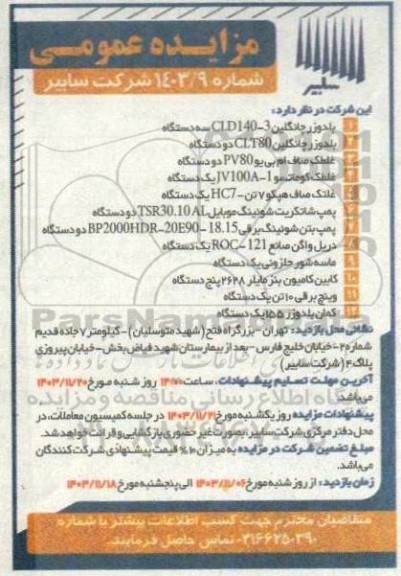 مزایده عمومی
شماره ۱۴۰۳/۹ شرکت سابیر
سابیر
این شرکت در نظر دارد:
۱ بلدوزر چانگلین CLD140-3 سه دستگاه
۲ بلدوزر چانگلین CLT80 دو دستگاه
۳ غلطک صاف ام بی یو PV80 دو دستگاه
۴ غلطک کوماتسو JV100A-1 یک دستگاه
۵ غلتک صاف هپکو ۷ تن - HC7 یک دستگاه
۶ پمپ شاتکریت شوئینگ موبایل TSR30.10 AL دو دستگاه
۷ پمپ بتن شوئینگ برقی BP2000HDR-20E90-18.15 دو دستگاه
۸ دریل واگن صانع ROC-121 یک دستگاه
۹ ماسه شور حلزونی یک دستگاه
۱۰ کابین کامیون بنز مایلر ۲۶۲۸ پنج دستگاه
۱۱ وینچ برقی ۱۰ تن یک دستگاه
۱۲ کمان بلدوزر ۱۵۵ یک دستگاه
نشانی محل بازدید: تهران - بزرگراه فتح (شهید متوسلیان) - کیلومتر ۷ جاده قدیم
شماره ۲ - خیابان خلیج فارس - بعد از بیمارستان شهید فیاض بخش - خیابان پیروزی
پلاک ۴ (شرکت سابیر)
آخرین مهلت تسلیم پیشنهادات: ساعت ۱۴:۰۰ روز شنبه مورخ ۱۴۰۳/۱۱/۲۰
می‌باشد.
پیشنهادات مزایده روز یکشنبه مورخ ۱۴۰۳/۱۱/۲۱ در جلسه کمیسیون معاملات، در
محل دفتر مرکزی شرکت سابیر، بصورت غیر حضوری بازگشایی و قرائت خواهد شد.
مبلغ تضمین شرکت در مزایده به میزان ۱۰% قیمت پیشنهادی شرکت کنندگان
می‌باشد.
زمان بازدید: از روز شنبه مورخ ۱۴۰۳/۱۱/۰۶ الی پنجشنبه مورخ ۱۴۰۳/۱۱/۱۸
متقاضیان محترم جهت کسب اطلاعات بیشتر با شماره
۰۳۱۶۶۲۵۰۳۹۰ تماس حاصل فرمایند.